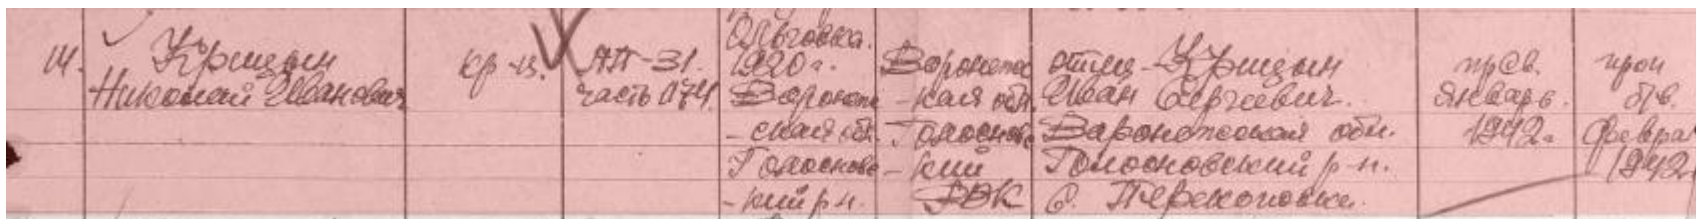 14.
Урицын
Николай Иванович
кр-ц.
АП-31.
часть 1741.
Ольговка.
1920 г.
Воронеж
-ская обл.
Голосновс
-кий р-н.
Воронежс
-кая обл.
Голосновс
-кий
РВК
отец-Урицын
Иван Сергеевич.
Воронежская обл.
Голосновский р-н.
с. Перекоповка.
прев.
январь.
1942г.
проп
б/в.
феврал
1942г.